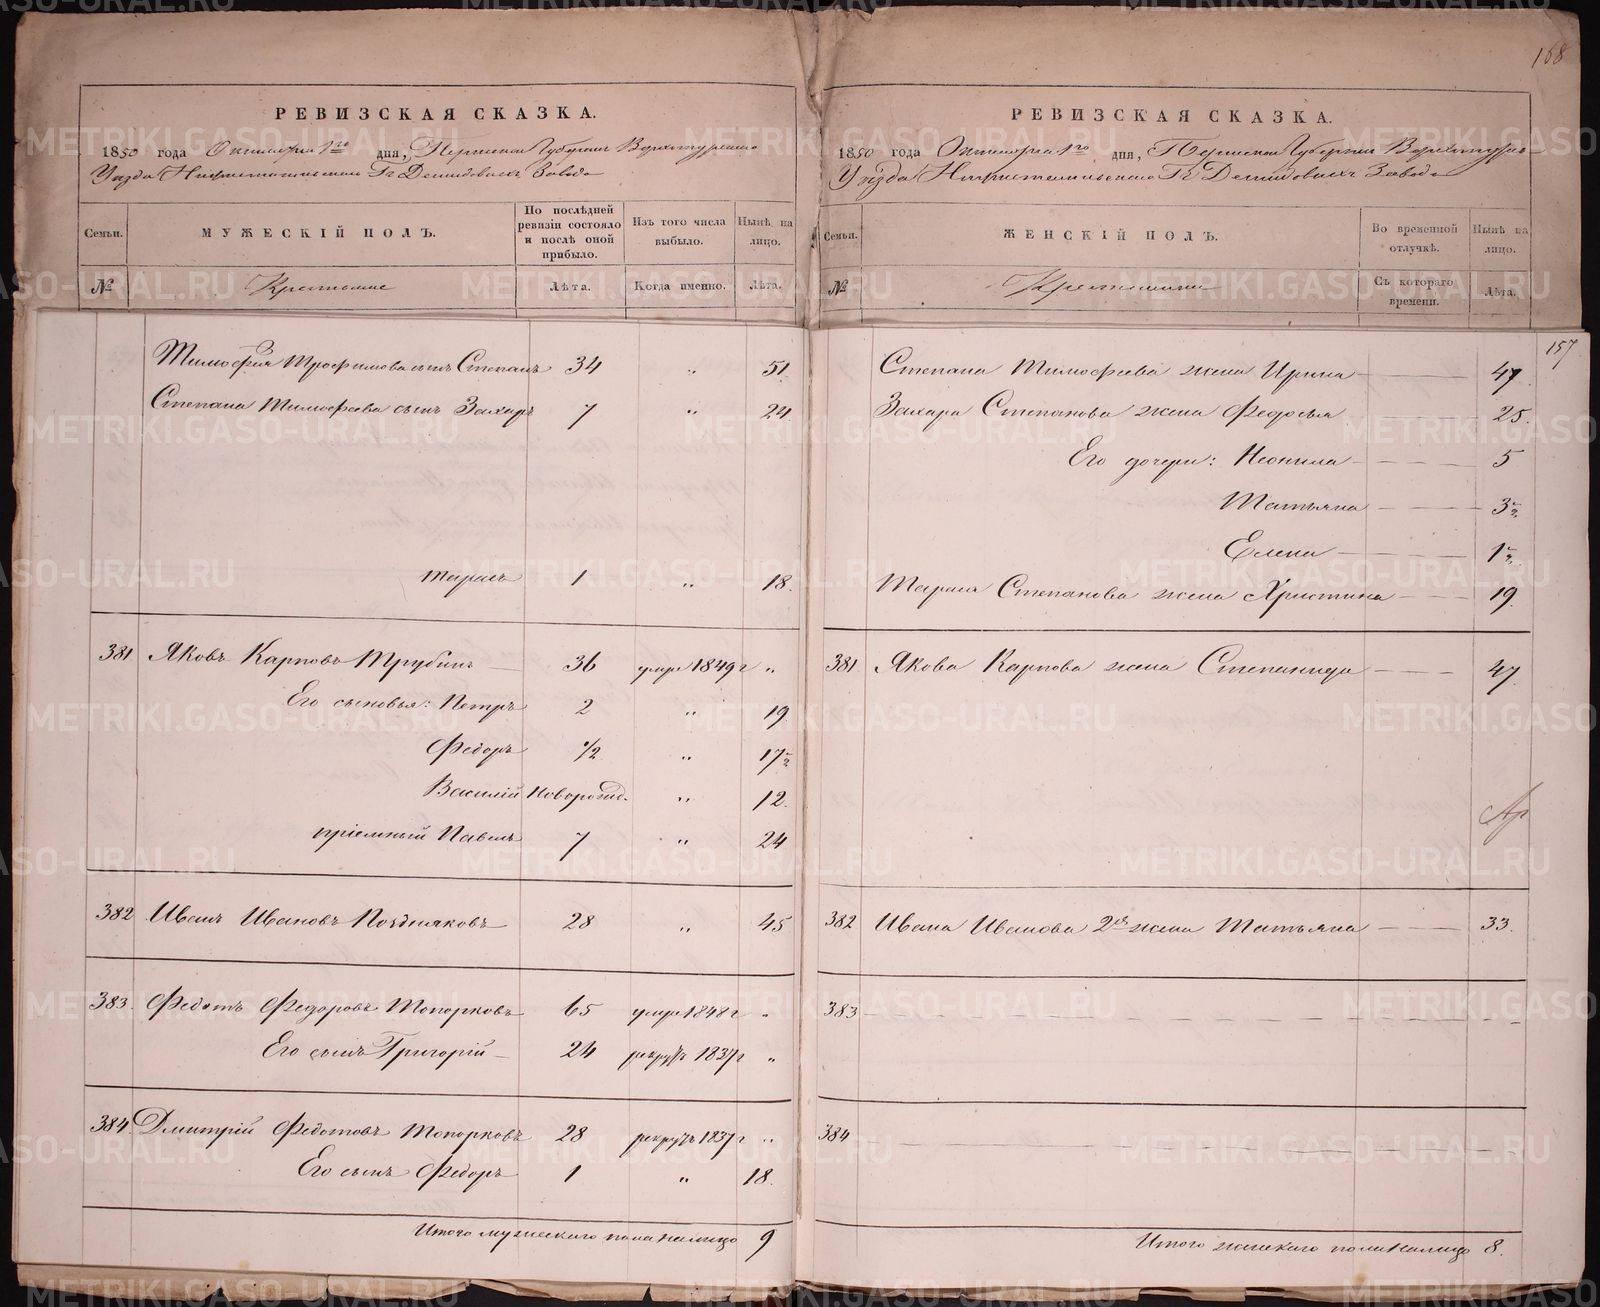 168
РЕВИЗСКАЯ СКАЗКА.
1850 года Октября 1го дня, Пермской Губернии Верхотурскаго
Уѣзда Нижнетагильскаго Гг Демидовыхъ Завода
Семьи. МУЖЕСКІЙ ПОЛЪ. По послѣдней ревизіи состояло и послѣ оной прибыло. Изъ того числа выбыло. Нынѣ на лицо.
№ Крестьяне Лѣта. Когда именно. Лѣта.
Тимофея Трофимова сынъ Степанъ 34 „ 51
Степана Тимофеева сынъ Захаръ 7 „ 24.
Тарасъ 1 „ 18.
381 Яковъ Карповъ Трубинъ 36 умре 1849 г „
Его сыновья: Петръ 2 „ 19
Федоръ 1/2 „ 17 1/2
Василій Новорожд. „ 12.
пріемный Павелъ 7 „ 24
382 Иванъ Ивановъ Поздняковъ 28 „ 45
383. Федотъ Федоровъ Топорковъ 65 умре 1848 г „
Его сынъ Григорій 24 рекрутъ 1837 г „
384. Дмитрій Федотовъ Топорковъ 28 рекрутъ 1837 г „
Его сынъ Федоръ 1 „ 18.
Итого мужескаго пола налицо 9
РЕВИЗСКАЯ СКАЗКА.
1850 года Октября 1го дня, Пермской Губернии Верхотурск
Уѣзда Нижнетагильскаго Гг Демидовыхъ Завода
Семьи. ЖЕНСКІЙ ПОЛЪ. Во временной отлучкѣ. Нынѣ на лицо.
№ Крестьянки Съ котораго времени. Лѣта.
157
Степана Тимофеева жена Ирина 47
Захара Степанова жена Федосья 25.
Его дочери: Неонила 5
Татьяна 3 1/2
Елена 1 1/2
Тараса Степанова жена Христина 19
381. Якова Карпова жена Степанида 47
382 Ивана Иванова 2я жена Татьяна 33.
383
384
Итого женскаго пола налицо 8.
METRIKI.GASO-URAL.RU